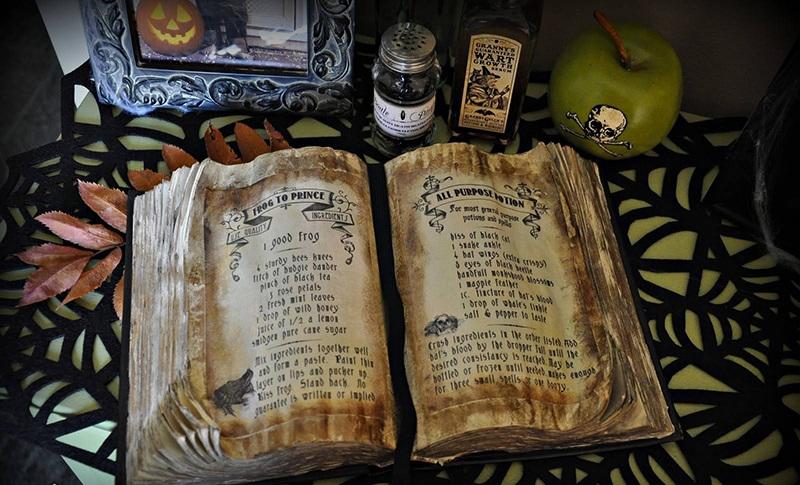 GRANNY'S
GUARANTEED
WART
GROWTH
SERUM
FROG TO PRINCE
INGREDIENTS
QUALITY
1 good frog
4 sturdy bees knees
titch of budgie dander
pinch of black tea
3 rose petals
2 fresh mint leaves
1 drop of wild honey
juice of 1/2 a lemon
smidgen pure cane sugar
Mix ingredients together well
and form a paste. Paint thin
layer on lips and pucker up
Kiss frog. Stand back. No
guarantee is written or implied
ALL PURPOSE POTION
For most general purpose
potions and spells
hiss of black cat
1 snake ankle
4 bat wings (extra crispy)
6 eyes of black beetle
handfull monkshood blossoms
1 magpie feather
1c. tincture of bat's blood
1 drop of whale's tinkle
salt & pepper to taste
Crush ingredients in the order listed. Add
bat's blood by the dropper full until the
desired consistancy is reached. May be
bottled or frozen until needed. Makes enough
for three small spells or one doozy.